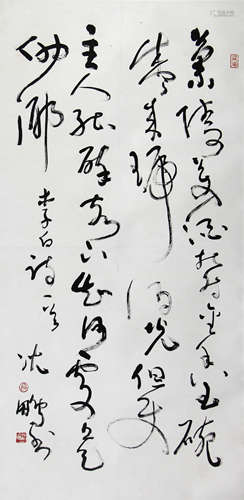 蘭陵美酒鬱金香玉碗
盛來琥珀光但使
主人能醉客不知何處是
他鄉
李白詩一首
沈鵬書